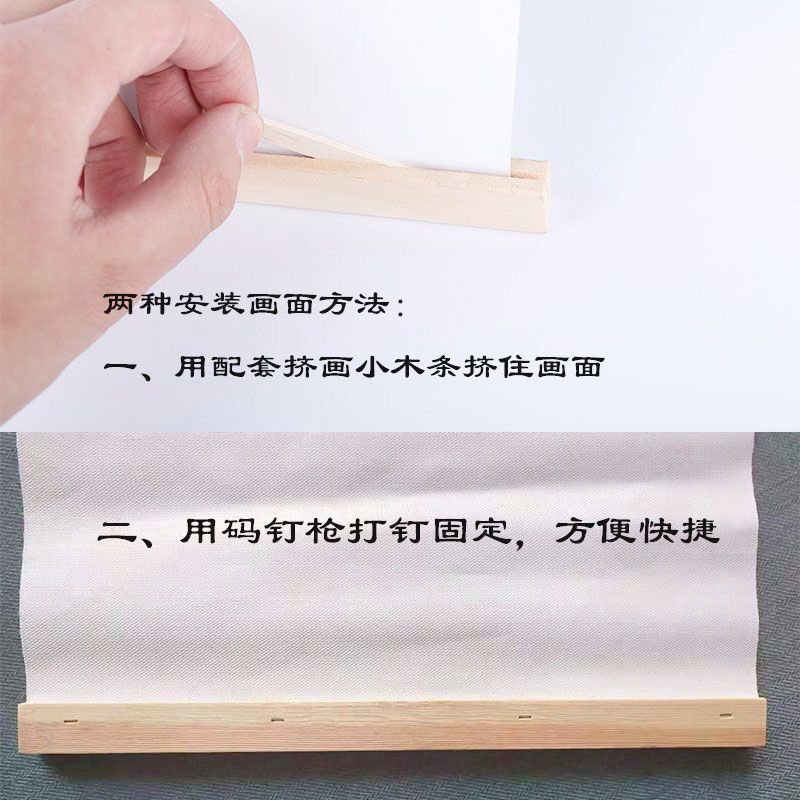 两种安装画面方法：
一、用配套挤画小木条挤住画面
二、用码钉枪打钉固定，方便快捷